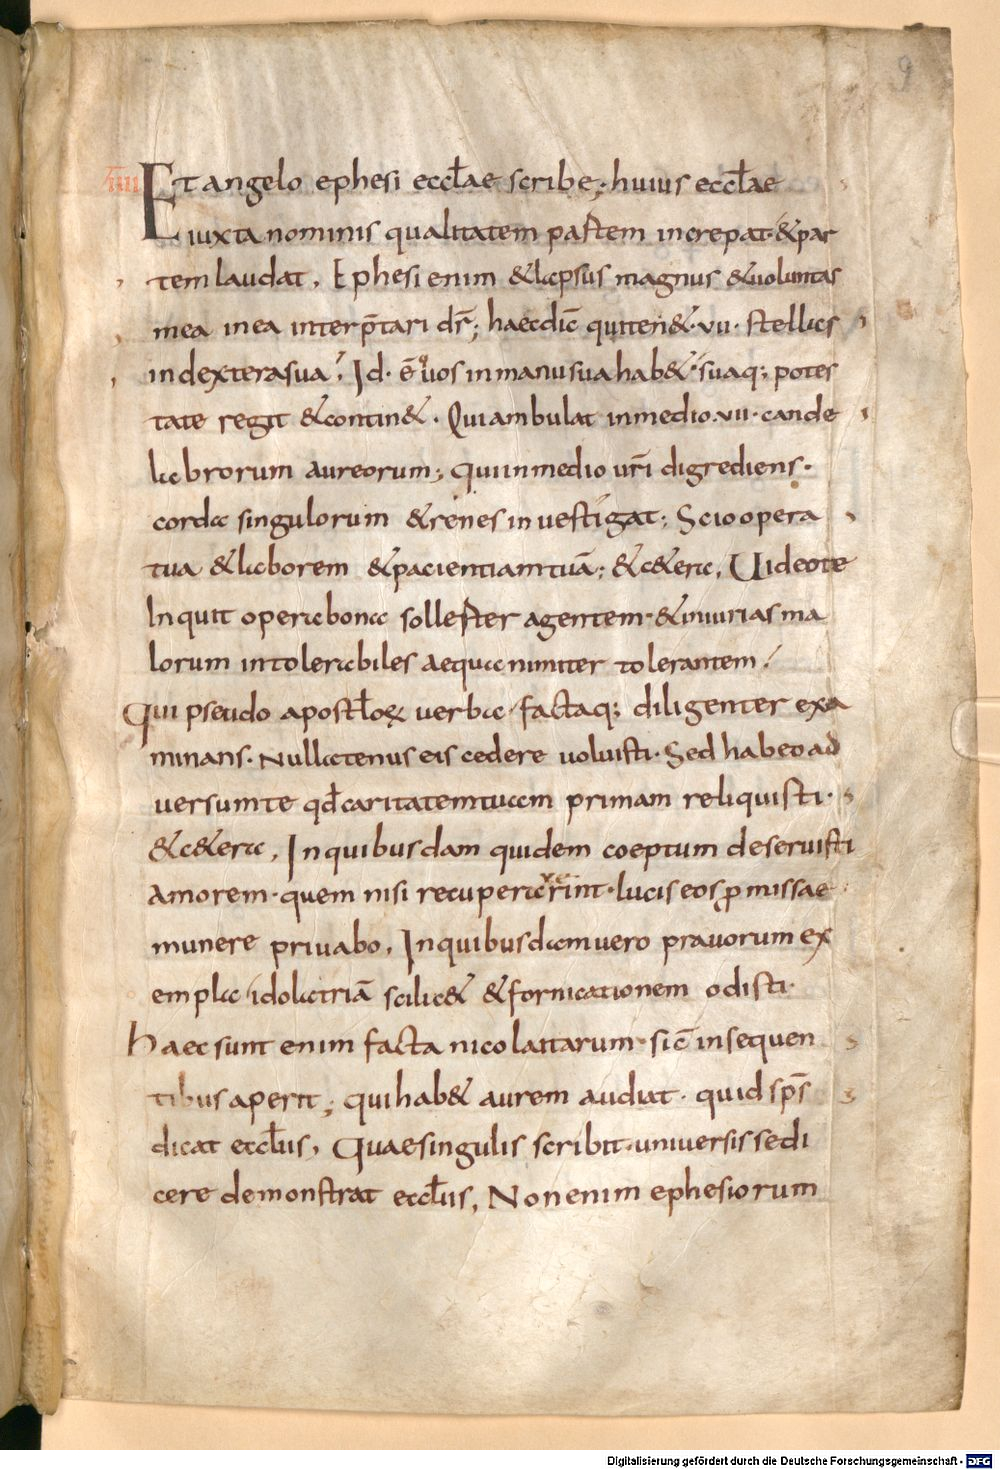 9
IIII Et angelo ephesi eccłae scribe; huius eccłae
iuxta nominis qualitatem partem increpat· & par
tem laudat. Ephesi enim & lapsus magnus & uoluntas
mea in ea interp̄tari dr̄; haec dic̄ qui ten&·vii·stellas
in dextera sua; Id·ē uos in manu sua hab&· suaq; potes
tate regit & contin&. Qui ambulat in medio·vii·cande
labrorum aureorum; qui in medio ur̄i digrediens·
corda singulorum & renes inuestigat; Scio opera
tua & laborem & pacientiam tuā; & c&era, Uideo te
Inquit opera bona sollester agentem· & iniurias ma
lorum intolerabiles aequanimiter tolerantem;
Qui pseudo apostłorꝝ uerba factaq; diligenter exa
minans· Nullatenus eis cedere uoluisti· Sed habeo ad
uersum te qđ caritatem tuam primam reliquisti·
& c&era, In quibusdam quidem coeptum deseruisti
amorem· quem nisi recuperarint· lucis eos ꝓmissae
munere priuabo. In quibusdam uero prauorum ex
empla idolatriā scilic& & fornicationem odisti·
Haec sunt enim facta nicolaitarum· sic̄ in sequen
tibus aperit; qui hab& aurem audiat· quid sp̄s
dicat eccłiis, Quae singulis scribit· uniuersis se di
cere demonstrat eccłiis, Non enim ephesiorum
Digitalisierung gefördert durch die Deutsche Forschungsgemeinschaft - DFG